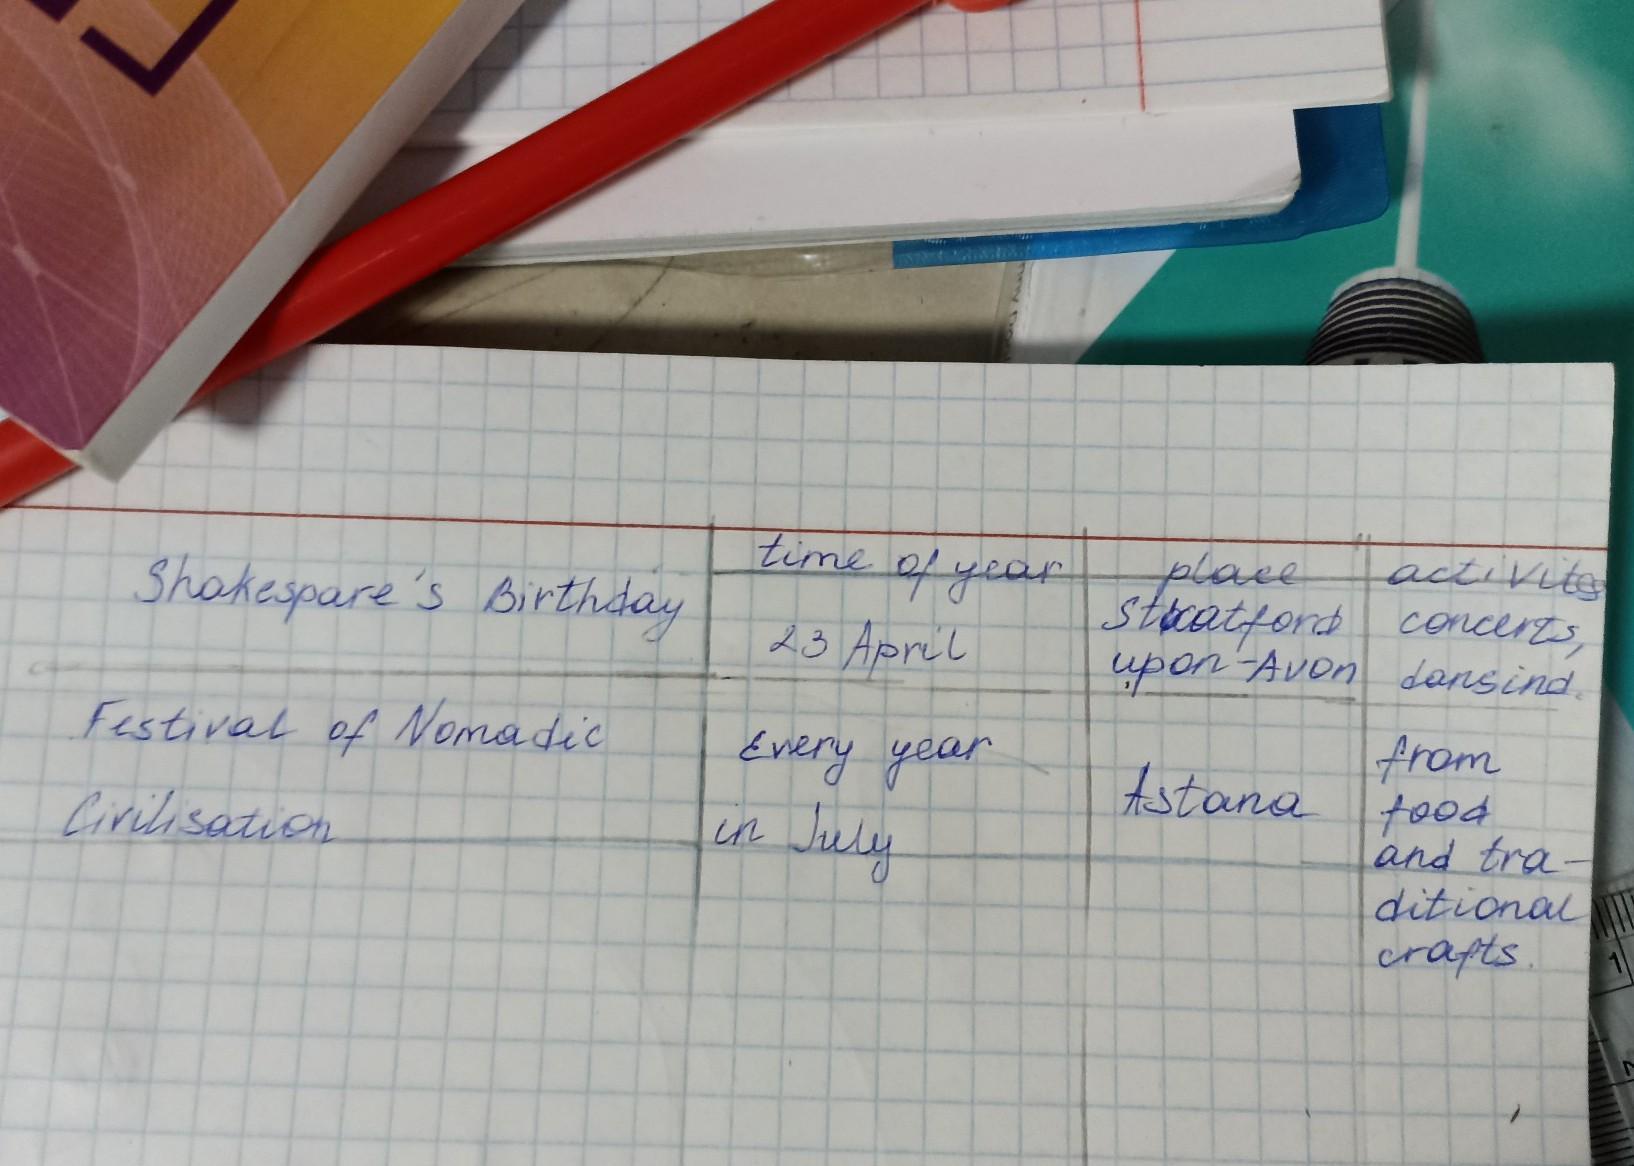 time of year place activites
Shakespare's Birthday
23 April
Stratford
upon-Avon
concerts,
dansind.
Festival of Nomadic
Civilisation
Every year
in July
Astana
from
food
and tra-
ditional
crafts.
1
2